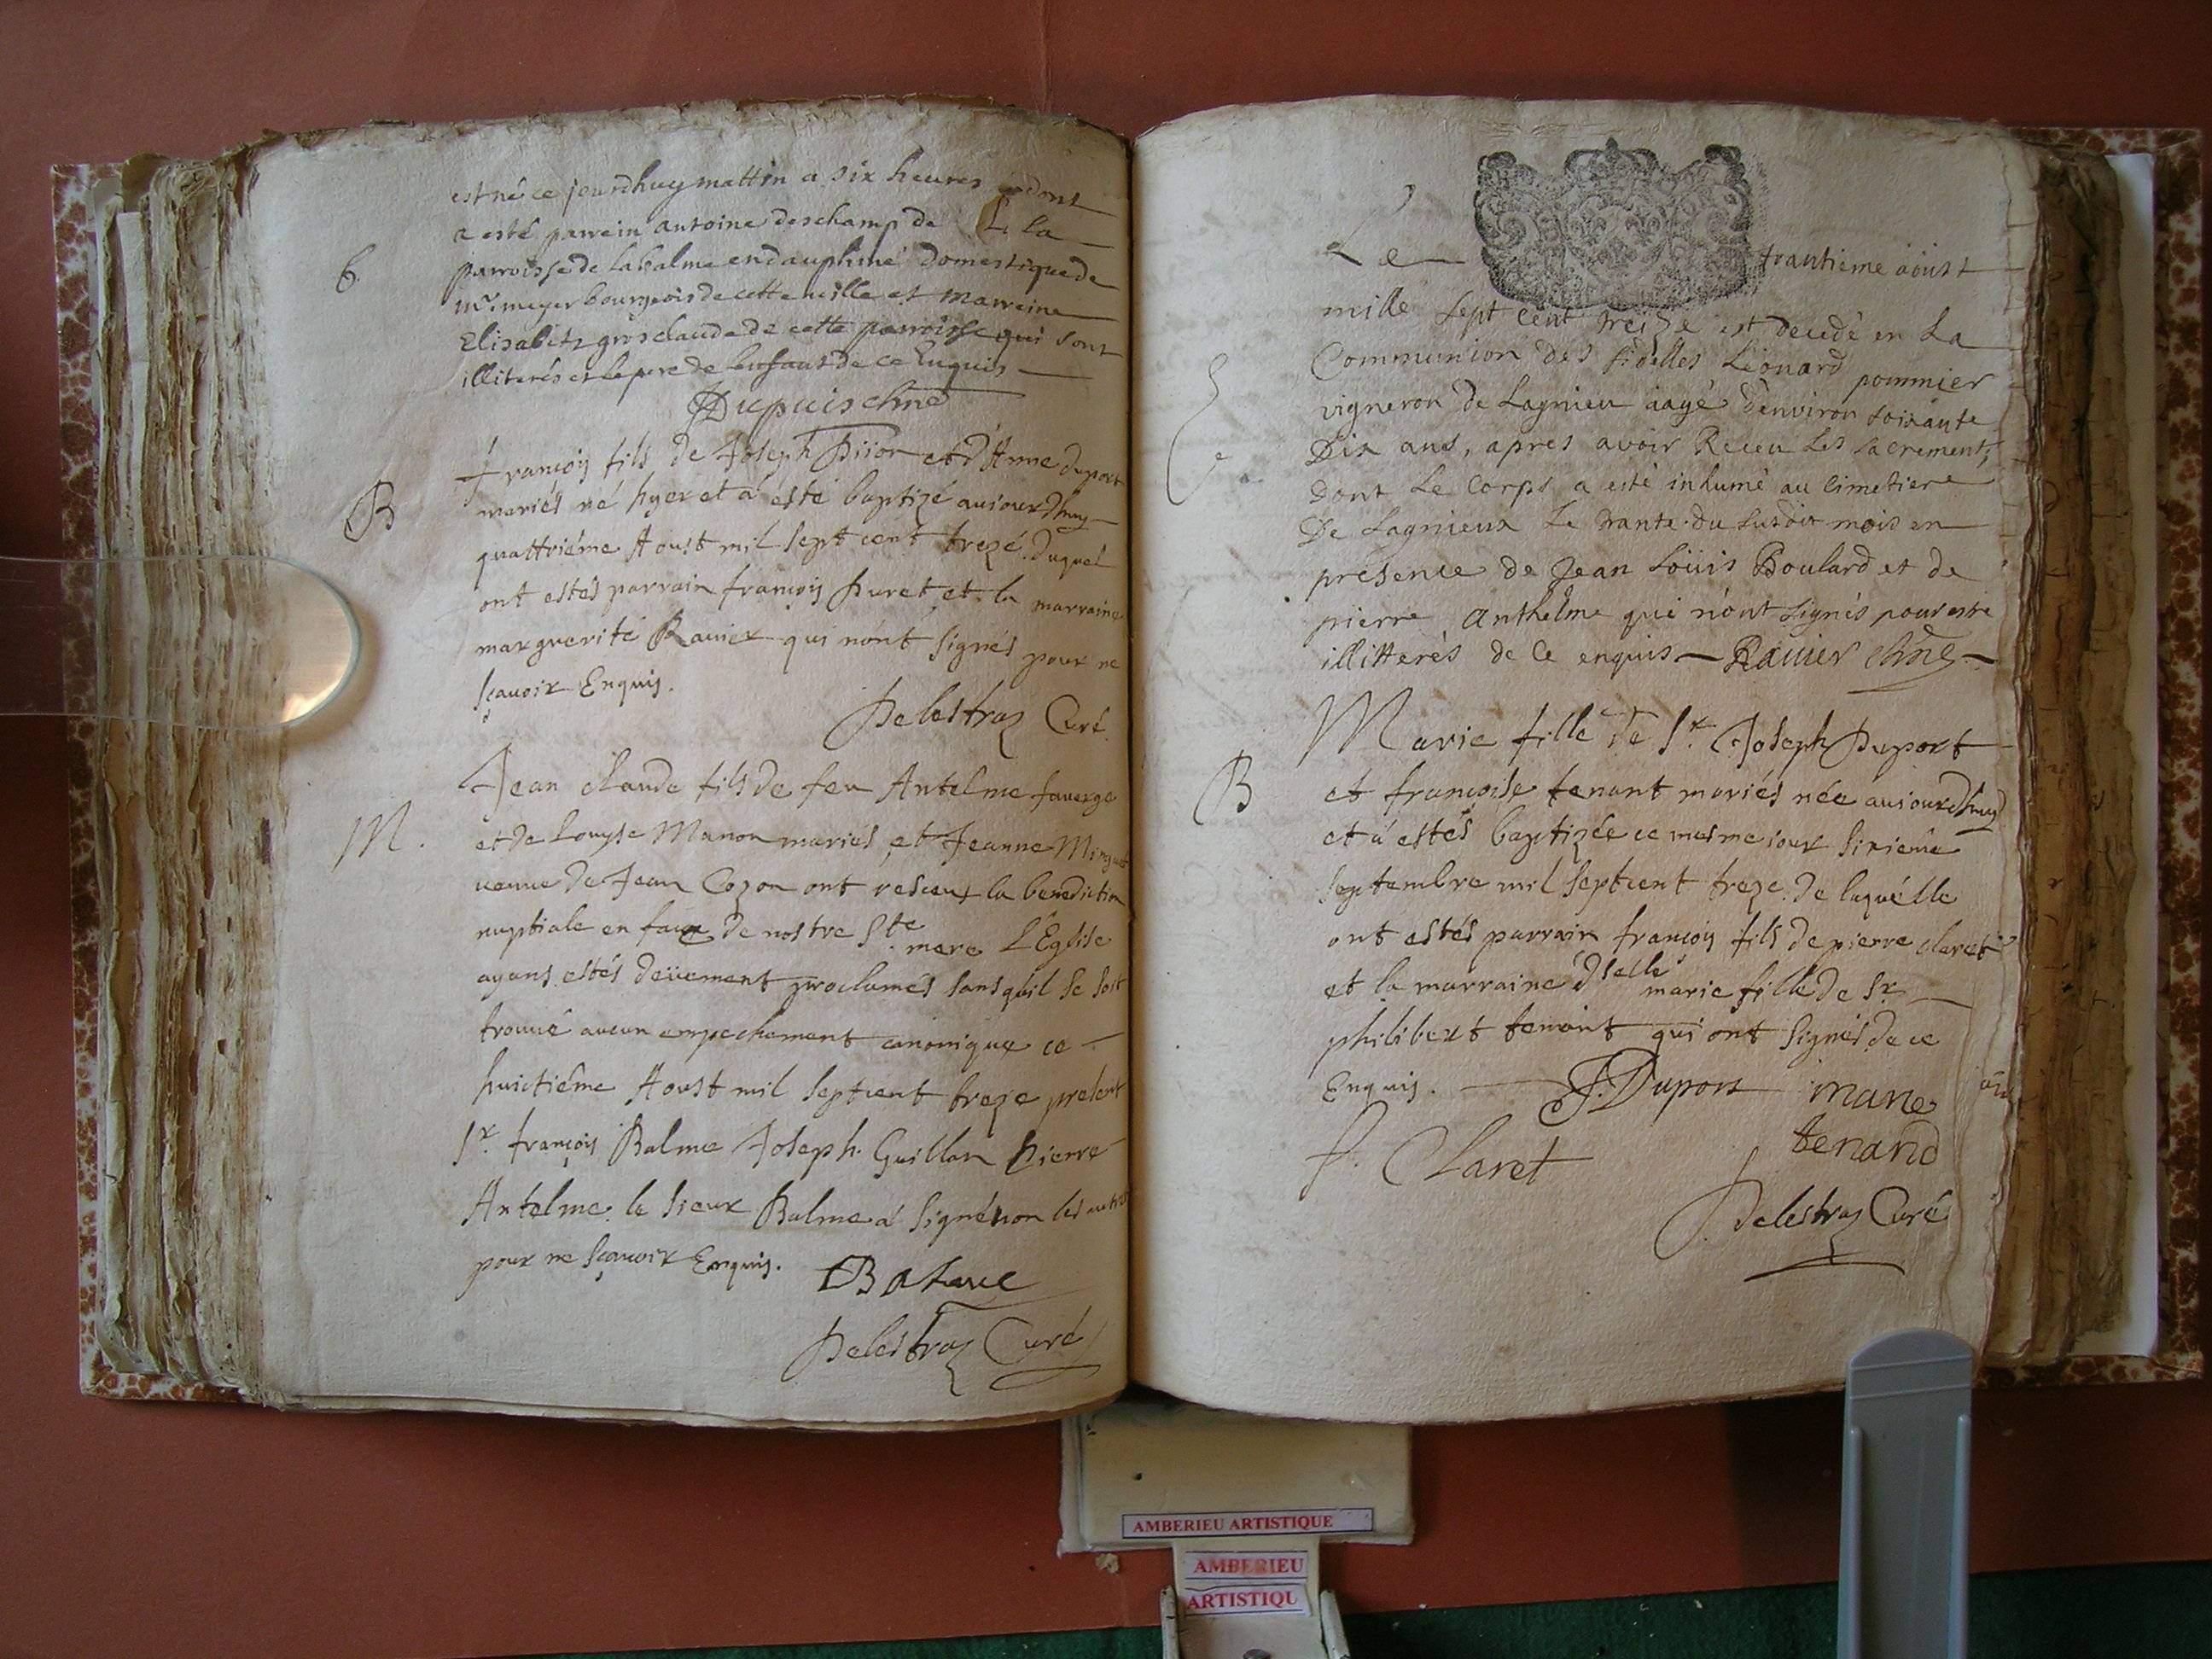 est né ce jourdhuy mattin a six heures dont
a esté parrein antoine deschamp de la
6.
parroisse de La balme en dauphiné domestique de
mr. meyer bourgeois de cette ville et marreine
Elisabets grosclaude de cette parroisse qui sont
illiterés et le pere de lenfant de ce Enquis
Dupuis
françois fils de Joseph et d'Anne duport
B
mariés né hyer et á esté baptizé auiourdhuy
quattriéme Aoust mil sept cent treze. duquel
ont estés parrain françois huret et la marraine
marguerite Rauier qui nònt signés pour ne
sçauoir Enquis.
Delestraz Curé.
Jean claude fils de feu Antelme fauerge
M.
et de Louyse Manon mariés, et Jeanne
veuue de Jean Cozon ont resceux la benediction
nuptiale en face de nostre Ste. mere L'Eglise
ayans estés deüement proclamés sans quil se soit
trouué aucun empechement canonique ce
huictiéme Aoust mil septcent treze present
Sr. françois Balme Joseph Guillon Pierre
Antelme. le sieur Balme á signé non les autres
pour ne sçauoir Enquis.
Balme
Delestraz Curé
Le trantieme aoust
mille sept cent treize est decedé en La
Communion des fidelles Léonard pommier
vigneron de Lagnieu aagé d'environ soixante
Dix ans, apres avoir Receu Les sacrements,
dont Le Corps a esté inhumé au Cimetiere
De Lagnieux Le trante du susdit mois en
présence de Jean Loüis Boulard et de
pierre anthelme qui n'ont signés pour estre
illitterés de Ce enquis Rauier
Marie fille de Sr. Joseph Duport
B
et françoise tenant mariés née auiourdhuy
et á estés baptizée ce mesme iour sixiéme
septembre mil septcent treze. de laquélle
ont estés parrain françois fils de pierre claret
et la marraine dselle marie fille de Sr.
philibert tenant qui ont signés de ce
Enquis. J. Duport marie
tenand
f. Claret
Delestraz Curé
AMBERIEU ARTISTIQUE
AMBERIEU
ARTISTIQU